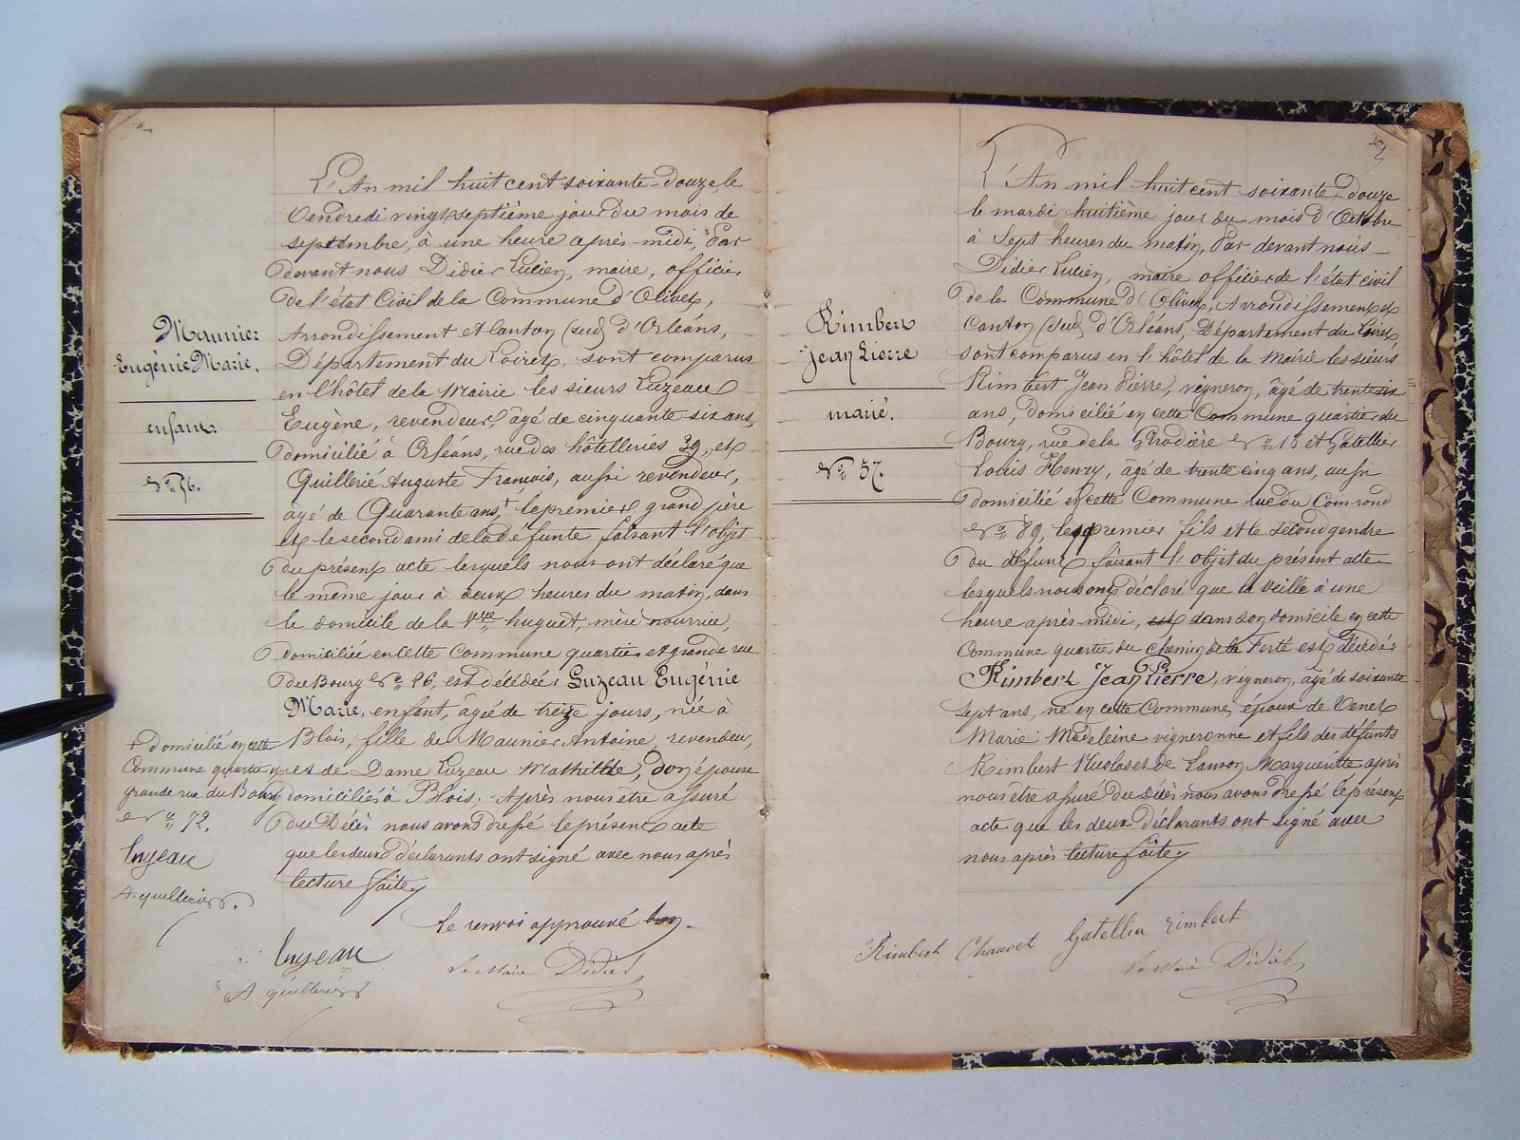 L'An mil huit cent soixante-douze, le
Vendredi vingt septième jour du mois de
septembre, à une heure après-midi, Par
devant nous Didier Lucien, maire, officier
de l'état Civil de la Commune d'Olivet,
Arrondissement et Canton (sud) d'Orléans,
Département du Loiret, sont comparus
en l'hôtel de la Mairie les sieurs Luzeau
Eugène, revendeur, âgé de cinquante-six ans,
domicilié à Orléans, rue des hôtelleries 39, et
Quillerié Auguste François, aussi revendeur,
âgé de Quarante ans, + le premier grand père
et le second ami de la défunte faisant l'objet
du présent acte lesquels nous ont déclaré que
le même jour à deux heures du matin, dans
le domicile de la Vve huguet, mère nourrice,
domiciliée en cette Commune quartier et grande rue
du Bourg No 96, est décédée Luzeau Eugénie
Marie, enfant, âgée de treize jours, née à
Blois, fille de Maunier Antoine, revendeur,
et de Dame Luzeau Mathilde, son épouse
domiciliés à Blois. Après nous être assuré
du Décès nous avons dressé le présent acte
que les deux déclarants ont signé avec nous après
lecture faite,
Maunier
Eugénie Marie.
enfant.
No 56.
+ domicilié en cette
Commune quartier
grande rue du Bourg
No 72.
Luzeau
A. quillerié
Le renvoi approuvé bon.
Luzeau
A quillerié
Le Maire Didier
L'An mil huit cent soixante-douze
le mardi huitième jour du mois d'Octobre
à sept heures du matin, Par devant nous
Didier Lucien, maire officier de l'état civil
de la Commune d'Olivet, Arrondissement et
Canton (sud) d'Orléans, Département du Loiret,
sont comparus en l'hôtel de la Mairie les sieurs
Rimbert Jean Pierre, vigneron, âgé de trente six
ans, domicilié en cette Commune quartier du
Bourg, rue de la No 10 et Gatellier
Louis Henry, âgé de trente cinq ans, aussi
domicilié en cette Commune rue du
No 89, le premier fils et le second gendre
du défunt faisant l'objet du présent acte
lesquels nous ont déclaré que la veille à une
heure après-midi, est dans son domicile en cette
Commune quartier du chemin de la Ferté est décédé
Rimbert Jean Pierre, vigneron, âgé de soixante
sept ans, né en cette Commune, époux de
Marie Madeleine vigneronne et fils des défunts
Rimbert et de Marguerite après
nous être assuré du décès nous avons dressé le présent
acte que les deux déclarants ont signé avec
nous après lecture faite,
Rimbert
Jean Pierre
marié.
No 57.
Rimbert Chauvet Gatellier rimbert
Le Maire Didier